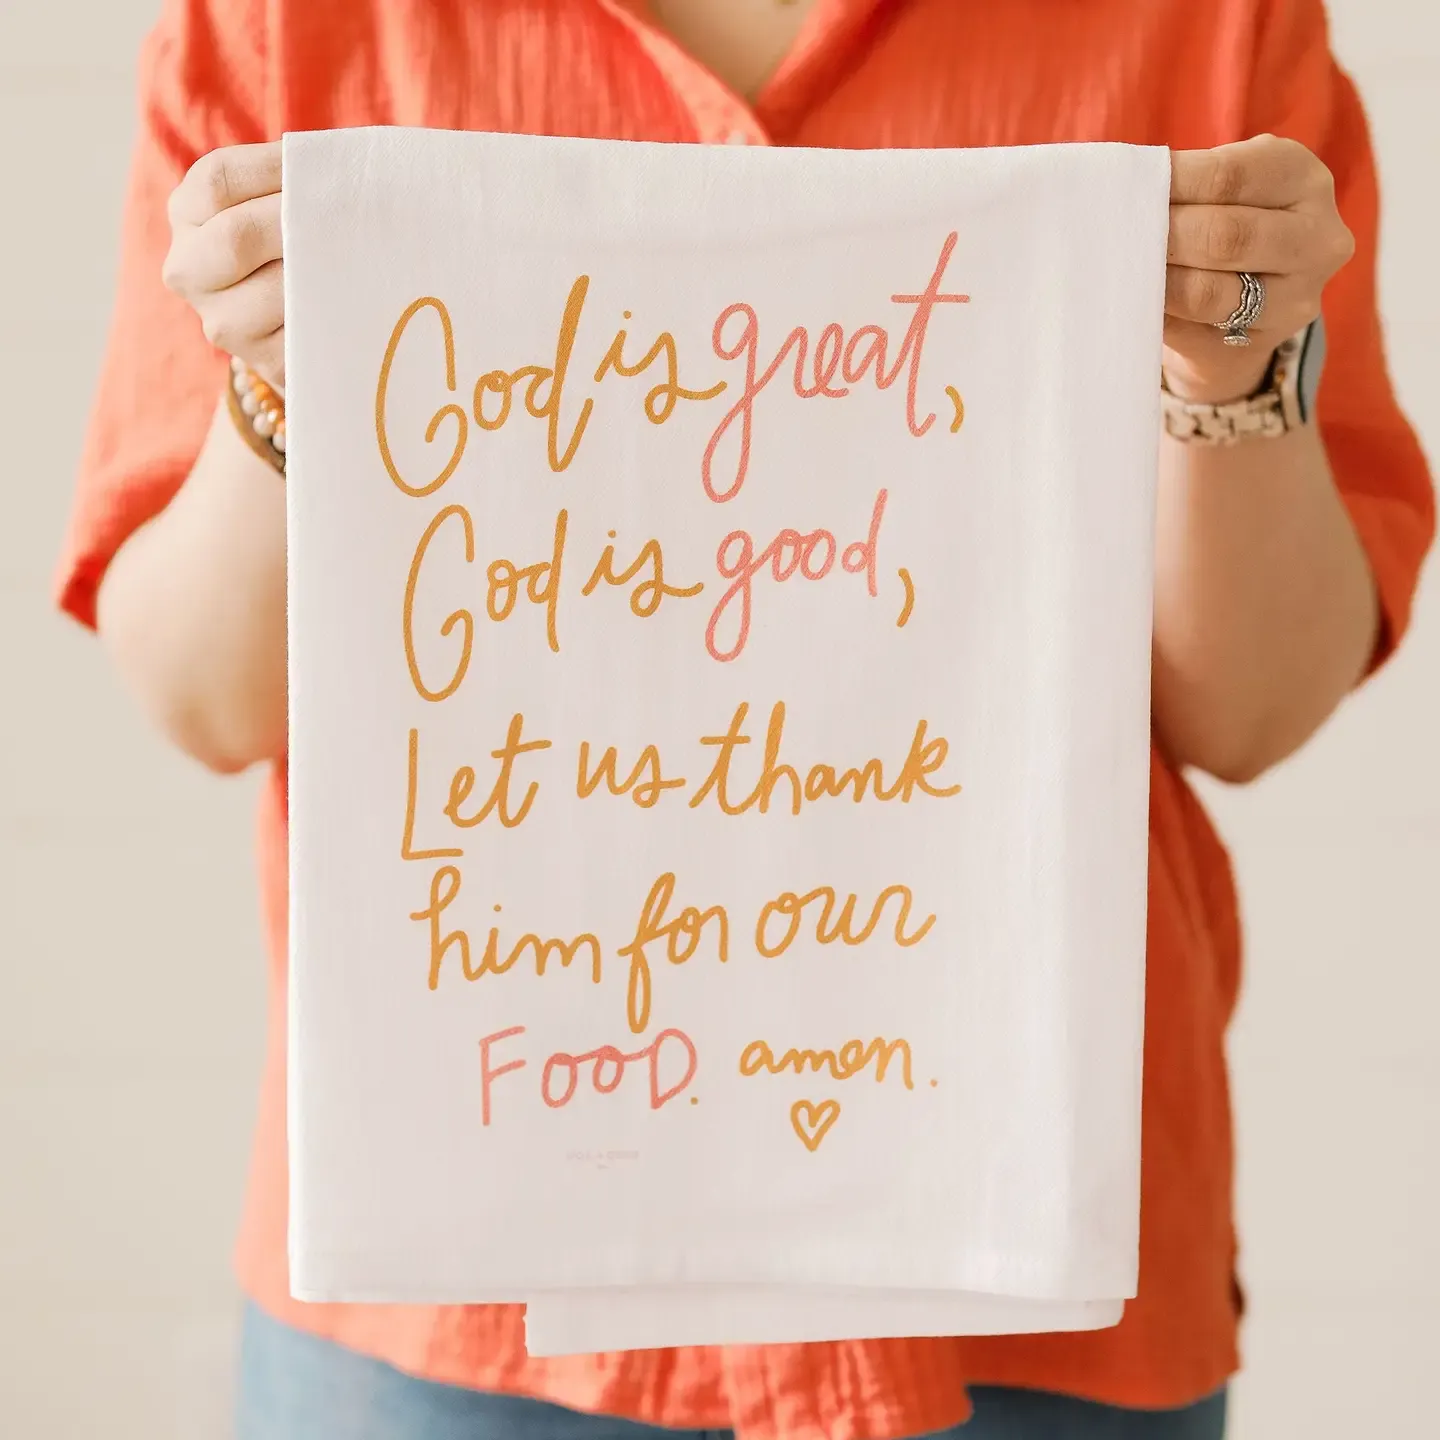 God is great,
God is good,
Let us thank
him for our
FOOD. amen.